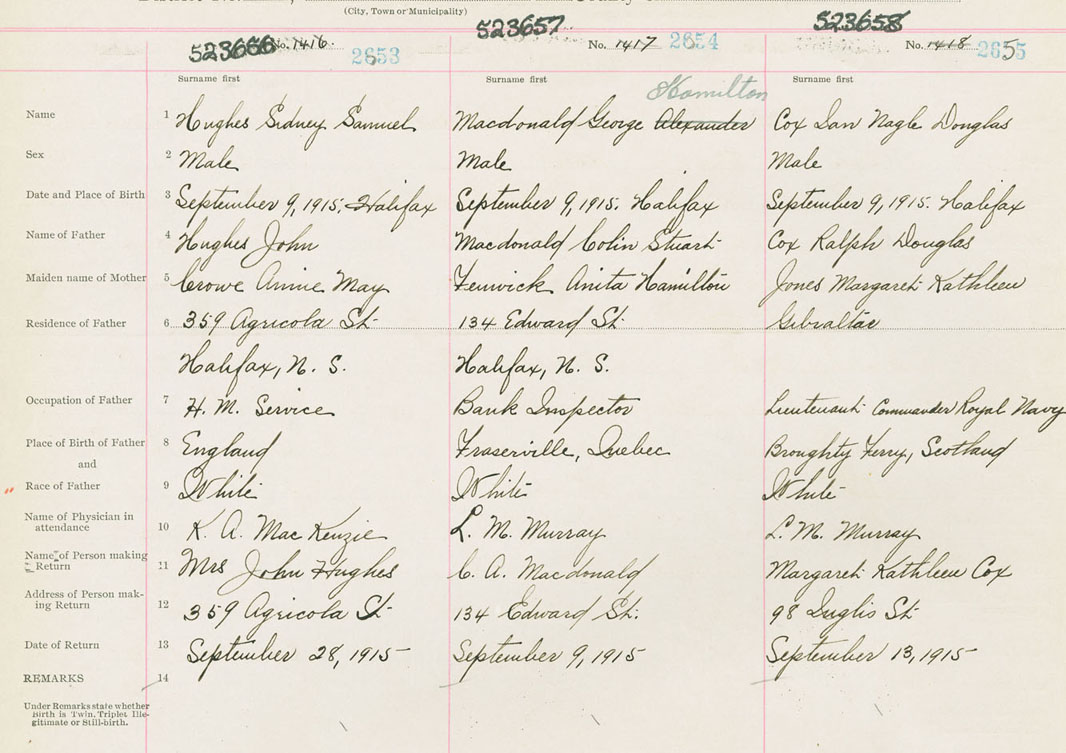 (City, Town or Municipality)
523656 No. 1416. 2653 523657 No. 1417 2654 523658 No. 1418 2655
Surname first Surname first Surname first
Hamilton
Name 1 Hughes Sidney Samuel Macdonald George Alexander Cox Ian Nagle Douglas
Sex 2 Male Male Male
Date and Place of Birth 3 September 9, 1915, Halifax September 9, 1915. Halifax September 9, 1915. Halifax
Name of Father 4 Hughes John Macdonald Colin Stuart Cox Ralph Douglas
Maiden name of Mother 5 Crowe Annie May Fenwick Anita Hamilton Jones Margaret Kathleen
Residence of Father 6 359 Agricola St. 134 Edward St. Gibraltar
Halifax, N. S. Halifax, N. S.
Occupation of Father 7 H. M. Service Bank Inspector Lieutenant Commander Royal Navy
Place of Birth of Father 8 England Fraserville, Quebec Broughty Ferry, Scotland
and
Race of Father 9 White White White
Name of Physician in
attendance 10 K. A. MacKenzie L. M. Murray L. M. Murray
Name of Person making
Return 11 Mrs John Hughes C. A. Macdonald Margaret Kathleen Cox
Address of Person mak-
ing Return 12 359 Agricola St 134 Edward St. 98 Inglis St
Date of Return 13 September 28, 1915 September 9, 1915 September 13, 1915
REMARKS 14
Under Remarks state whether
Birth is Twin, Triplet, Ille-
gitimate or Still-birth.